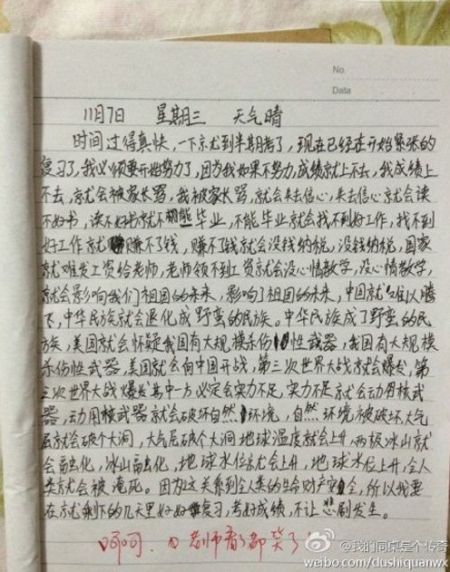 No.
Data
11月7日 星期三 天气晴
时间过得真快,一下就到半期考了,现在已经在开始紧张的
复习了,我必须要开始努力了,因为我如果不努力,成绩就上不去,我成绩上
不去,就会被家长骂,我被家长骂,就会失去信心,失去信心就会读
不好书,读不好书就不能毕业,不能毕业就会找不到好工作,找不到
好工作就赚不了钱,赚不了钱就会没钱纳税,没钱纳税,国家
就难发工资给老师,老师领不到工资就会没心情教学,没心情教学,
就会影响我们祖国的未来,影响了祖国的未来,中国就难以腾
飞,中华民族就会退化成野蛮的民族。中华民族成了野蛮的民
族,美国就会怀疑我国有大规模杀伤性武器,我国有大规模
杀伤性武器,美国就会向中国开战,第三次世界大战就会爆发,第
三次世界大战爆发其中一方必定会实力不足,实力不足就会动用核武
器,动用核武器就会破坏自然环境,自然环境被破坏,大气
层就会破个大洞,大气层破个大洞地球温度就会上升,两极冰山就
会融化,冰山融化,地球水位就会上升,地球水位上升,全人
类就会被淹死。因为这关系到全人类的生命财产安全,所以我要
在就剩下的几天里好好复习,考好成绩,不让悲剧发生。
呵呵. 老师看了都笑了
@我的同桌是个传奇
weibo.com/dushiquanwx